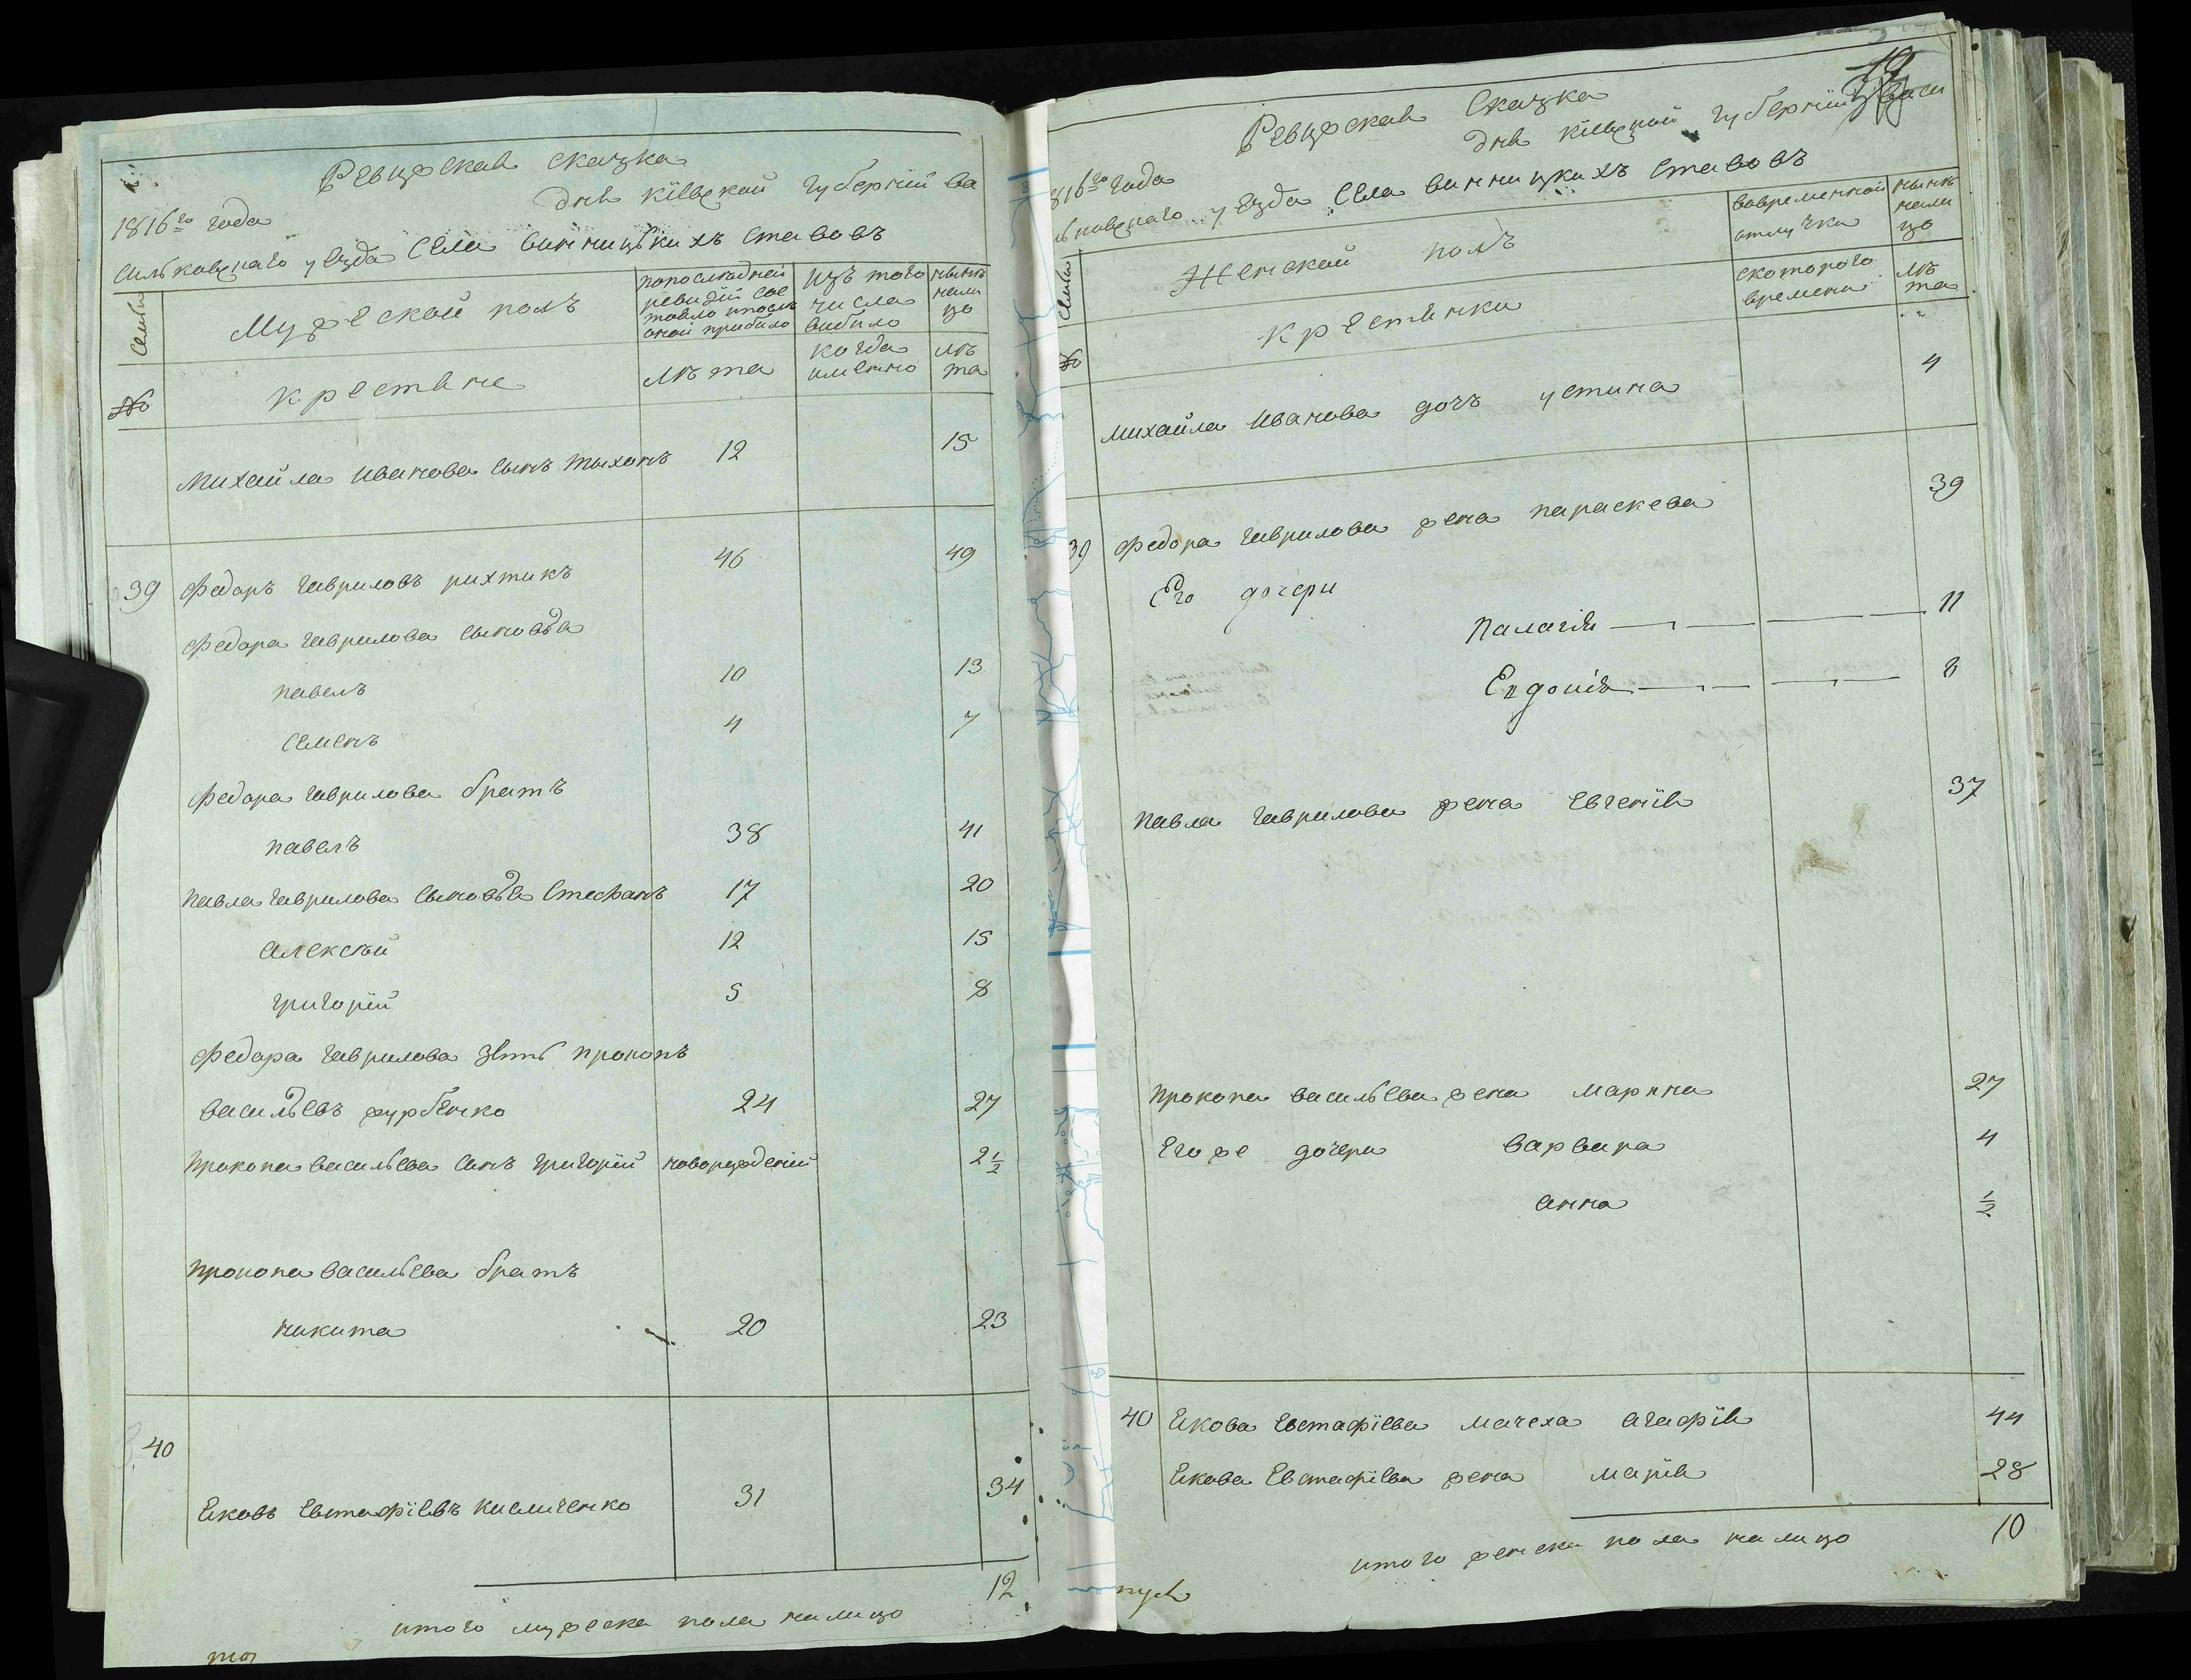 Ревизская сказка
1816го года дня кіевской губерніи ва
сильковскаго уезда села винницькихъ ставовъ
Семьи
Мужеской полъ
по последней ревизіи состояло и после оной прибыло
изъ того числа выбыло
нынѣ налицо
№
крестьяне
лѣта
когда именно
лѣта
михайла иванова сынъ тыхонъ 12 15
39 Федоръ гавриловъ рихтикъ 46 49
Федора гаврилова сыновья
павелъ 10 13
семенъ 4 7
Федора гаврилова братъ
павелъ 38 41
павла гаврилова сыновья Стефанъ 17 20
алексѣй 12 15
григорій 5 8
Федора гаврилова зять прокопъ
васильевъ журбенко 24 27
прокопа васильева сынъ григорій новорожденій 2 1/2
прокопа васильева братъ
никита 20 23
40
Яковъ Евстафіевъ кисличенко 31 34
12
итого мужеска пола налицо
19
Ревизская Сказка
816го года дня кіевской губерніи васи
льковскаго уезда села винницкихъ ставовъ
Семьи
Женской полъ
во временной отлучки
нынѣ налицо
№
крестьянки
с которого времени
лѣта
михайла иванова дочъ устина 4
39 Федора гаврилова жена параскева 39
Его дочери
Палагія 11
Евдокія 8
павла гаврилова жена евгенія 37
прокопа васильева жена марина 27
его же дочери варвара 4
анна 1/2
40 Якова Евстафіева мачеха агафія 44
Якова Евстафіева жена марія 28
итого женска пола налицо 10